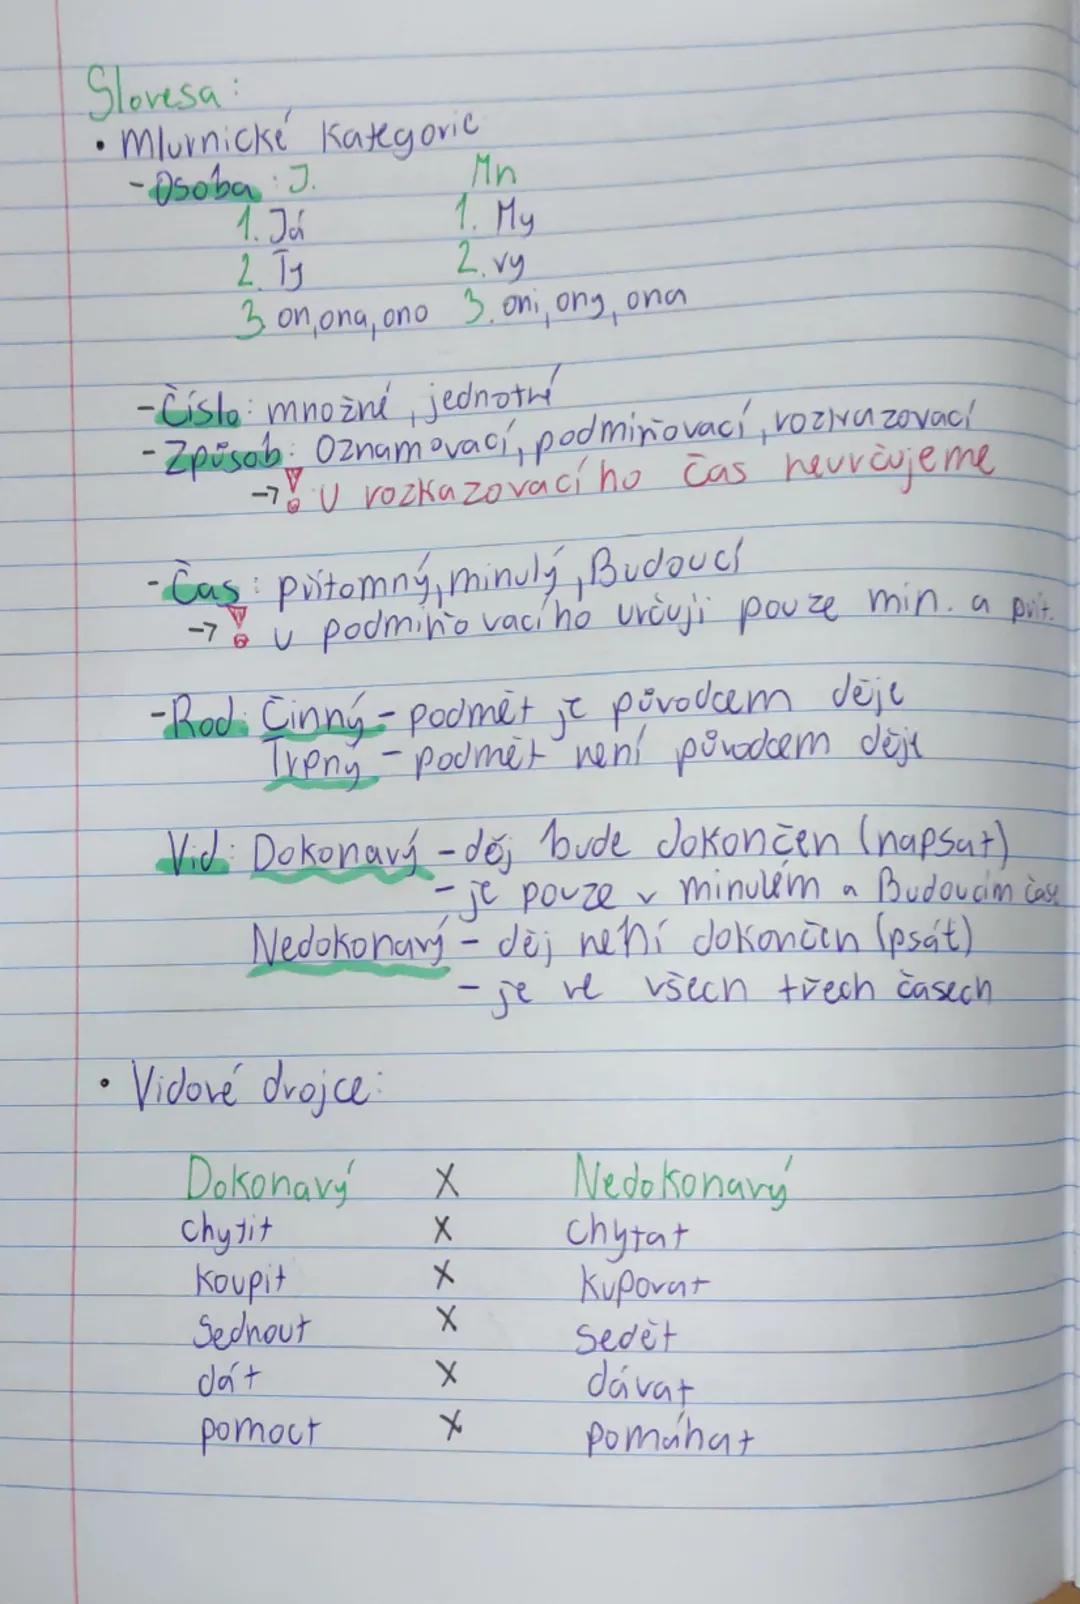 Slovesa:
• Mluvnické Kategorie
- Osoba: J. Mn
1. Já 1. My
2. Ty 2. vy
3 on, ona, ono 3. oni, ony, ona
- Číslo: množné, jednotné
- Způsob: Oznamovací, podmiňovací, rozkazovací
→ ! U rozkazovacího čas neurčujeme
- Čas: přítomný, minulý, Budoucí
→ ! u podmiňovacího určuji pouze min. a přít.
- Rod: Činný - podmět je původcem děje
Trpný - podmět není původcem děje
Vid: Dokonavý - děj bude dokončen (napsat)
- je pouze v minulém a Budoucím čase
Nedokonavý - děj není dokončen (psát)
- je ve všech třech časech
• Vidové dvojce:
Dokonavý X Nedokonavý
chytit X chytat
koupit X kupovat
Sednout X Sedět
dát X dávat
pomoct X pomáhat